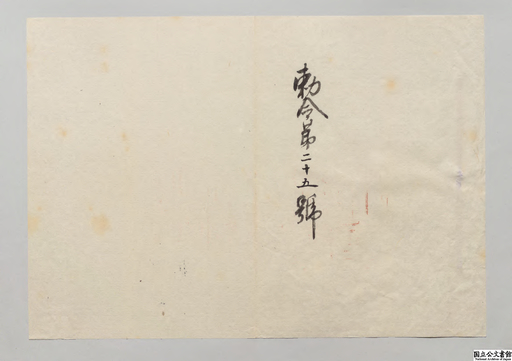 勅令第二十五號
国立公文書館
National Archives of Japan